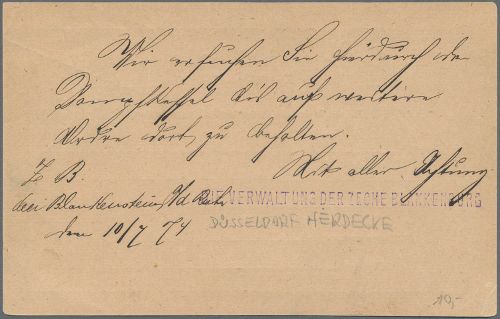 Wir ersuchen Sie hierdurch den
Dampfkessel bis auf weitere
Ordre dort zu behalten.
Z. B. Mit aller Achtung
bei Blankenstein a/d Ruhr DIE VERWALTUNG DER ZECHE BLANKENBURG
den 10/7 74
DÜSSELDORF HERDECKE
10,-